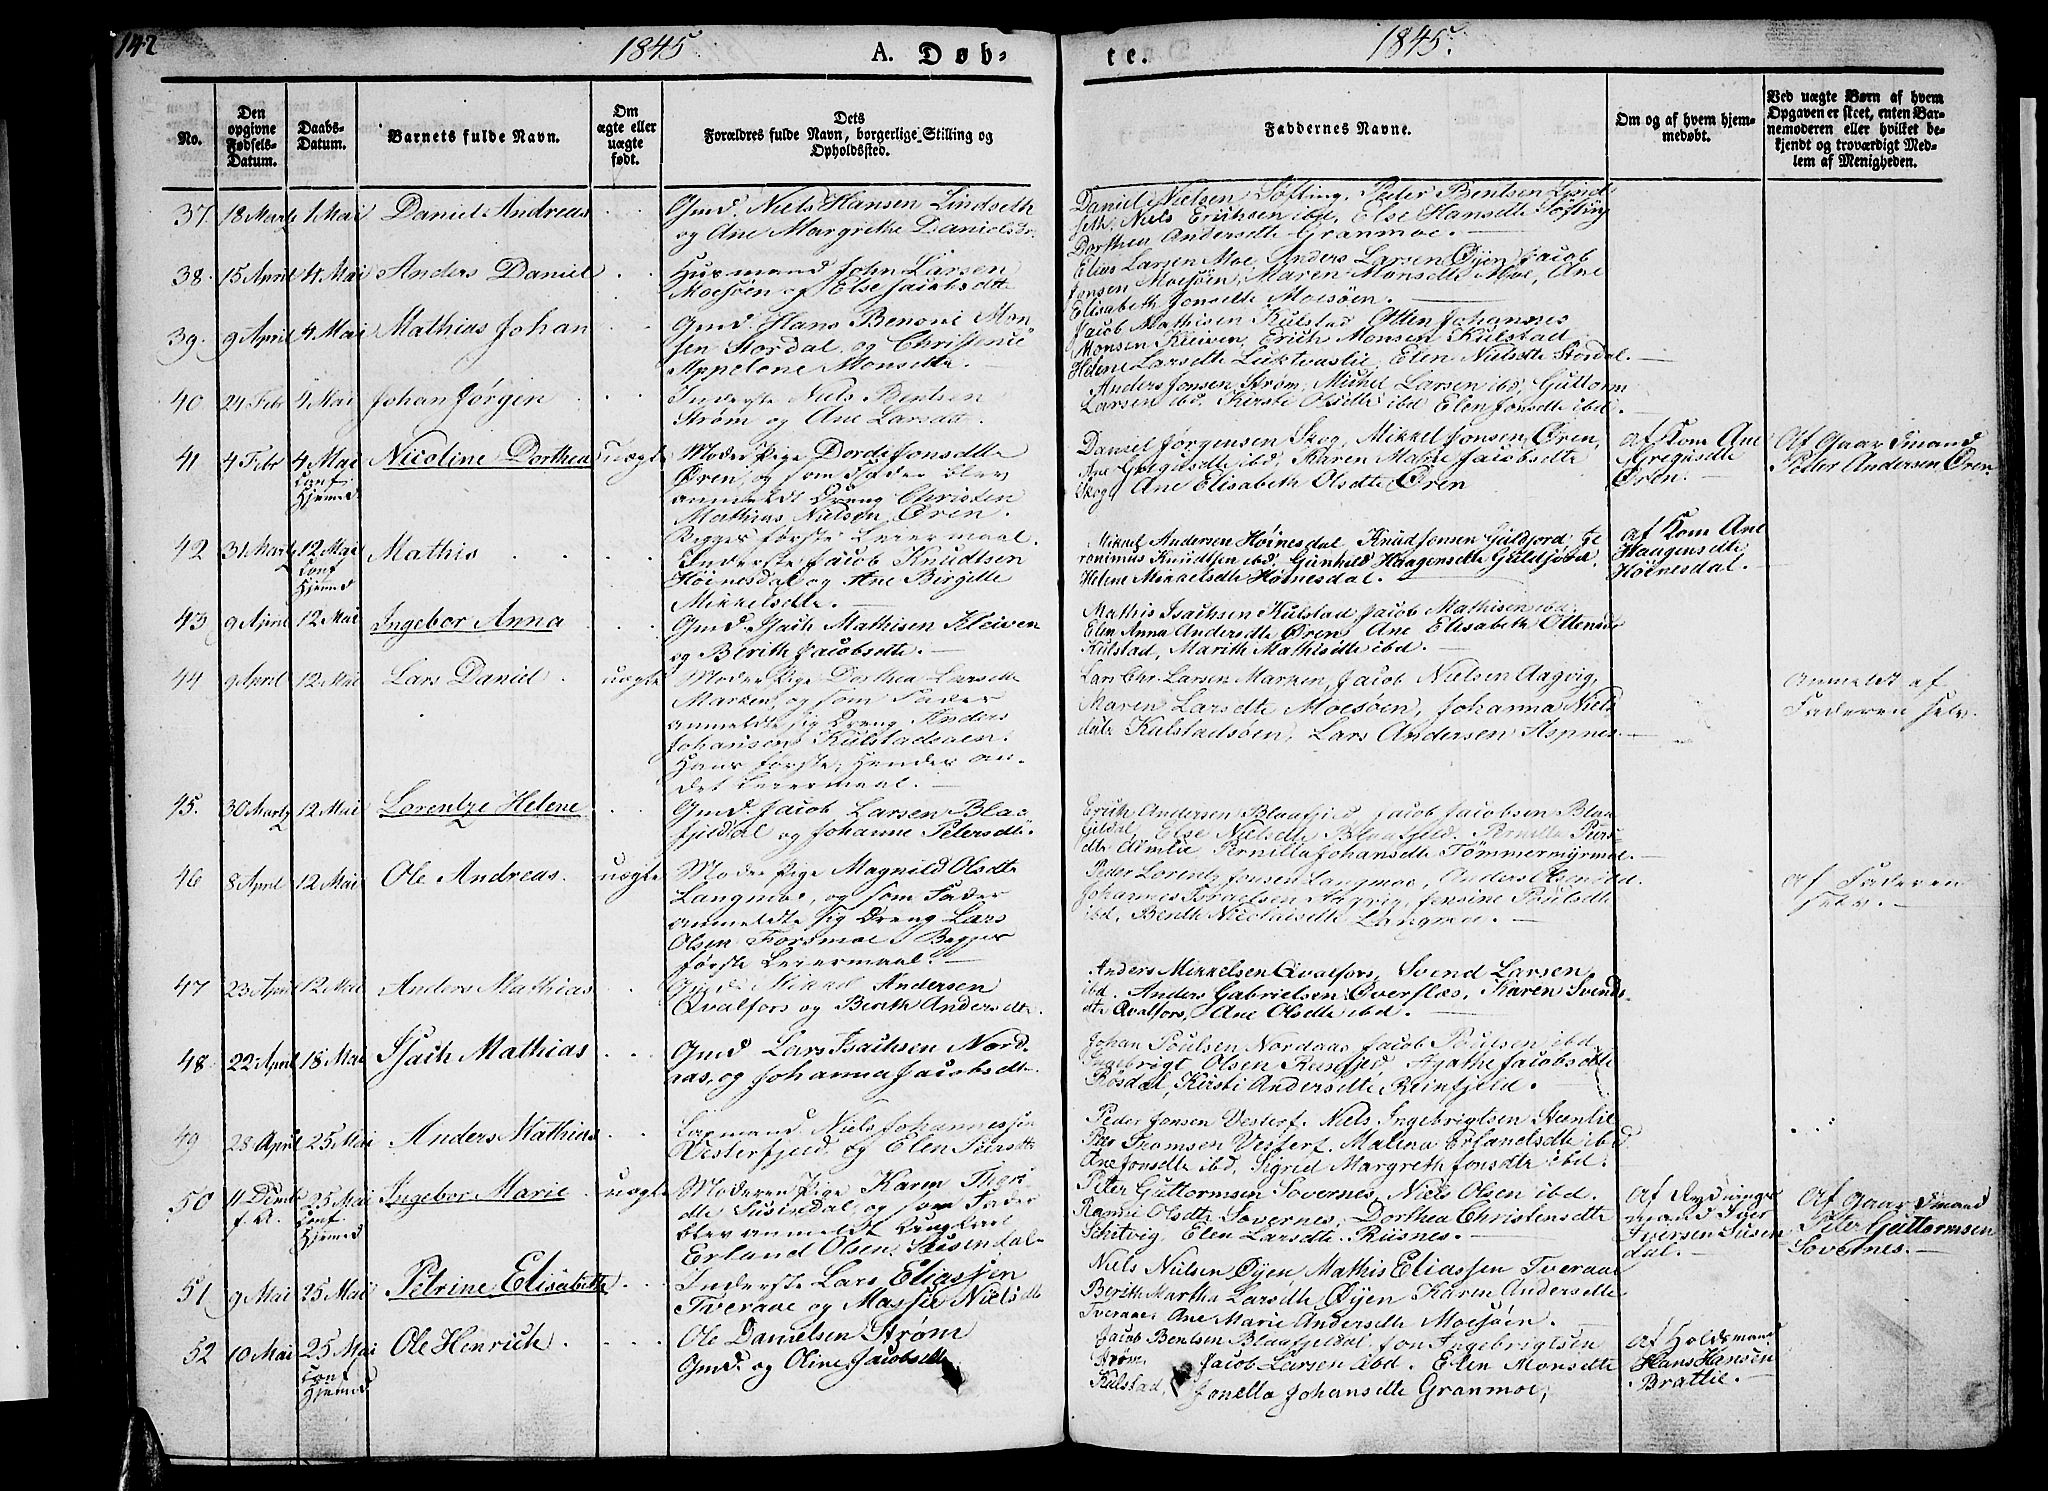 142
1845
A. Døb-
te.
1845.
No.
Den opgivne Fødsels-Datum.
Daabs-Datum.
Barnets fulde Navn.
Om ægte eller uægte født.
Dets Forældres fulde Navn, borgerlige Stilling og Opholdssted.
Faddernes Navne.
Om og af hvem hjem-medøbt.
Ved uægte Børn af hvem Opgaven er skeet, enten Bar-nemoderen eller hvilket be-kjendt og troværdigt Med-lem af Menigheden.
37. 18 Martz 1 Mai Daniel Andreas
Gmd. Niels Hansen Lindseth
og Ane Margrethe Danielsdr.
Daniel Nielsen Softing, Peder Bentsen Lind
seth, Niels Erichsen ibd, Else Hansdtr Softing
Dorthea Andersdtr Granmoe.
38. 15 April 4 Mai Anders Daniel
Husmand John Larsen
Moesøen og Else Jacobsdtr
Elias Larsen Moe, Anders Larsen Øyen Jacob
Jonsen Moesøen, Maren Monsdtr Moe, Ane
Elisabeth Jonsdtr Moesøen.
39. 9 April 4 Mai Mathias Johan
Gmd. Hans Benoni Mon
sen Stordal og Christenie
Appelone Monsdtr.
Jacob Mathisen Kulstad Otten Johannes
Monsen Kleiven, Erich Monsen Kulstad
Helene Larsdtr Luktvaslie, Elen Nielsdtr Stordal.
40 24 Febr 4 Mai Johan Jørgen
Inderste Niels Bentsen
Strøm og Ane Larsdtr.
Anders Jonsen Strøm, Michel Larsen ibd, Guttorm
Larsen ibd, Kirste Olsdtr ibd Elen Jonsdtr ibd.
41 4 Febr 4 Mai Conf Hjemd Nicoline Dorthea uægte
Moder Pige Dordi Jonsdtr
Øren, og som Fader blev
anmeldt Dreng Christen
Mathias Nielsen Øren.
Begges første Leiermaal.
Daniel Jørgensen Skog, Mikkel Jonsen Øren,
Ane Gregusdtr ibd, Karen Marie Jacobsdtr
Skog, Ane Elisabeth Olsdtr Øren
af Kom Ane
Gregusdtr
Øren.
Af Gaardmand
Peder Andersen Øren
42 31 Martz 12 Mai Conf Hjemd Mathis
Inderste Jacob Knudtsen
Høinesdal og Ane Birgitte
Mikkelsdtr.
Mikkel Andersen Høinesdal, Knud Jensen Guldfjord, Je
ronimus Knudtsen ibd, Gunhild Haagensdtr Guldfjord,
Helene Mikkelsdtr Høinesdal.
af Kom Ane
Haagensdtr
Høinesdal.
43 9 April 12 Mai Ingebor Anna
Gmd. Isach Mathisen Kleiven
og Berith Jacobsdtr.
Mathis Isachsen Kulstad, Jacob Mathisen ibd.
Elen Anna Andersdtr Øren, Ane Elisabeth Ottensdtr
Kulstad, Marith Mathisdtr ibd.
44 9 April 12 Mai Lars Daniel uægte
Moder Pige Dorthea Larsdtr
Marken, og som Fader
anmeldte sig Dreng Anders
Johansen Kulstadsøen.
Hans første, Hendes an-
det Leiermaal.
Lars Chr. Larsen Marken, Jacob Nielsen Aagvig,
Maren Larsdtr Moesøen, Johanna Niels
datr Kulstadsøen, Lars Andersen Aspnes.
Anmeldt af
Faderen selv.
45. 30 Martz 12 Mai Lorentze Helene
Gmd. Jacob Larsen Blaa
fjeldal og Johanne Petersdtr.
Erich Andersen Blaafjeld, Jacob Jacobsen Blaa
fjeldal, Else Nielsdtr Blaafjeld, Pernille Peders
dtr Aimlie Pernilla Johansdtr Tømmermyrmoe.
46 8 April 12 Mai Ole Andreas. uægte
Moder Pige Magnild Olsdtr
Langmoe, og som Fader
anmeldte sig Dreng Lars
Olsen Forsmoe. Begges
første Leiermaal.
Peder Lorentz Jonsen Langmoe, Anders Olsen ibd.
Johannes Israelsen Aagvig, Jonsine Poulsdtr
ibd, Berith Nicolaisdtr Langmoe.
Af Faderen
selv.
47 23 April 12 Mai Anders Mathias
Gmd: Mikkel Andersen
Qvalfors og Berith Andersdtr.
Anders Mikkelsen Qvalfors, Svend Larsen
ibd. Anders Gabrielsen Øverflæs, Karen Svends-
dtr Qvalfors, Ane Olsdtr ibd.
48 22 April 18 Mai Isach Mathias
Gmd Lars Isachsen Nord
aas, og Johanna Jacobsdtr.
Johan Poulsen Nordaas, Jacob Poulsen ibd.
Ingebrigt Olsen Reinfjeld, Agathe Jacobsdtr
Røsdal, Kirsti Andersdtr Reinfjeld.
49 28 April 25 Mai Anders Mathias
Lapmand Niels Johannessen
Vesterfjeld og Elen Larsdtr
Peder Jonsen Vesterf. Niels Ingebrigtsen Steenlie
Thomsen Vesterf. Malena Erlandsdtr ibd.
Ane Jonsdtr ibd, Sigrid Margreth Jonsdtr ibd.
50 25 Mai Conf Hjemd Ingebor Marie uægte
Moderen Pige Karen
Susendal, og som Fader
blev anmeldt Ungkarl
Erland Olsen, Susendal
Peter Guttormsen Sovernes, Niels Olsen ibd.
Olsdtr Sovernes, Dorthea Christensdtr
Skitvig, Elen Larsdtr Rusnes.
Af Rydnings
mand Iver
Iversen Susen
dal.
Af Gaardmand
Peter Guttormsen
Sovernes.
51 9 Mai 25 Mai Petrine Elisabeth
Inderste Lars Eliassen
Tveraae og Masse Nielsdtr
Niels Nielsen Øyen, Mathis Eliassen Tveraae
Berith Martha Larsdtr Øyen Karen Andersdtr
Tveraae, Ane Marie Andersdtr Moesøen.
52 10 Mai 25 Mai Conf Hjemd Ole Henrich
Ole Danielsen Strøm
Gmd. og Oline Jacobsdtr
Jacob Bentsen Blaafjeldal, Jon Ingebrigtsen
Strøm, Jacob Larsen ibd. Elen Monsdtr
Kulstad, Jonetta Johansdtr Granmoe,
Af Holdsmand
Hans Hansen
Brattlie.